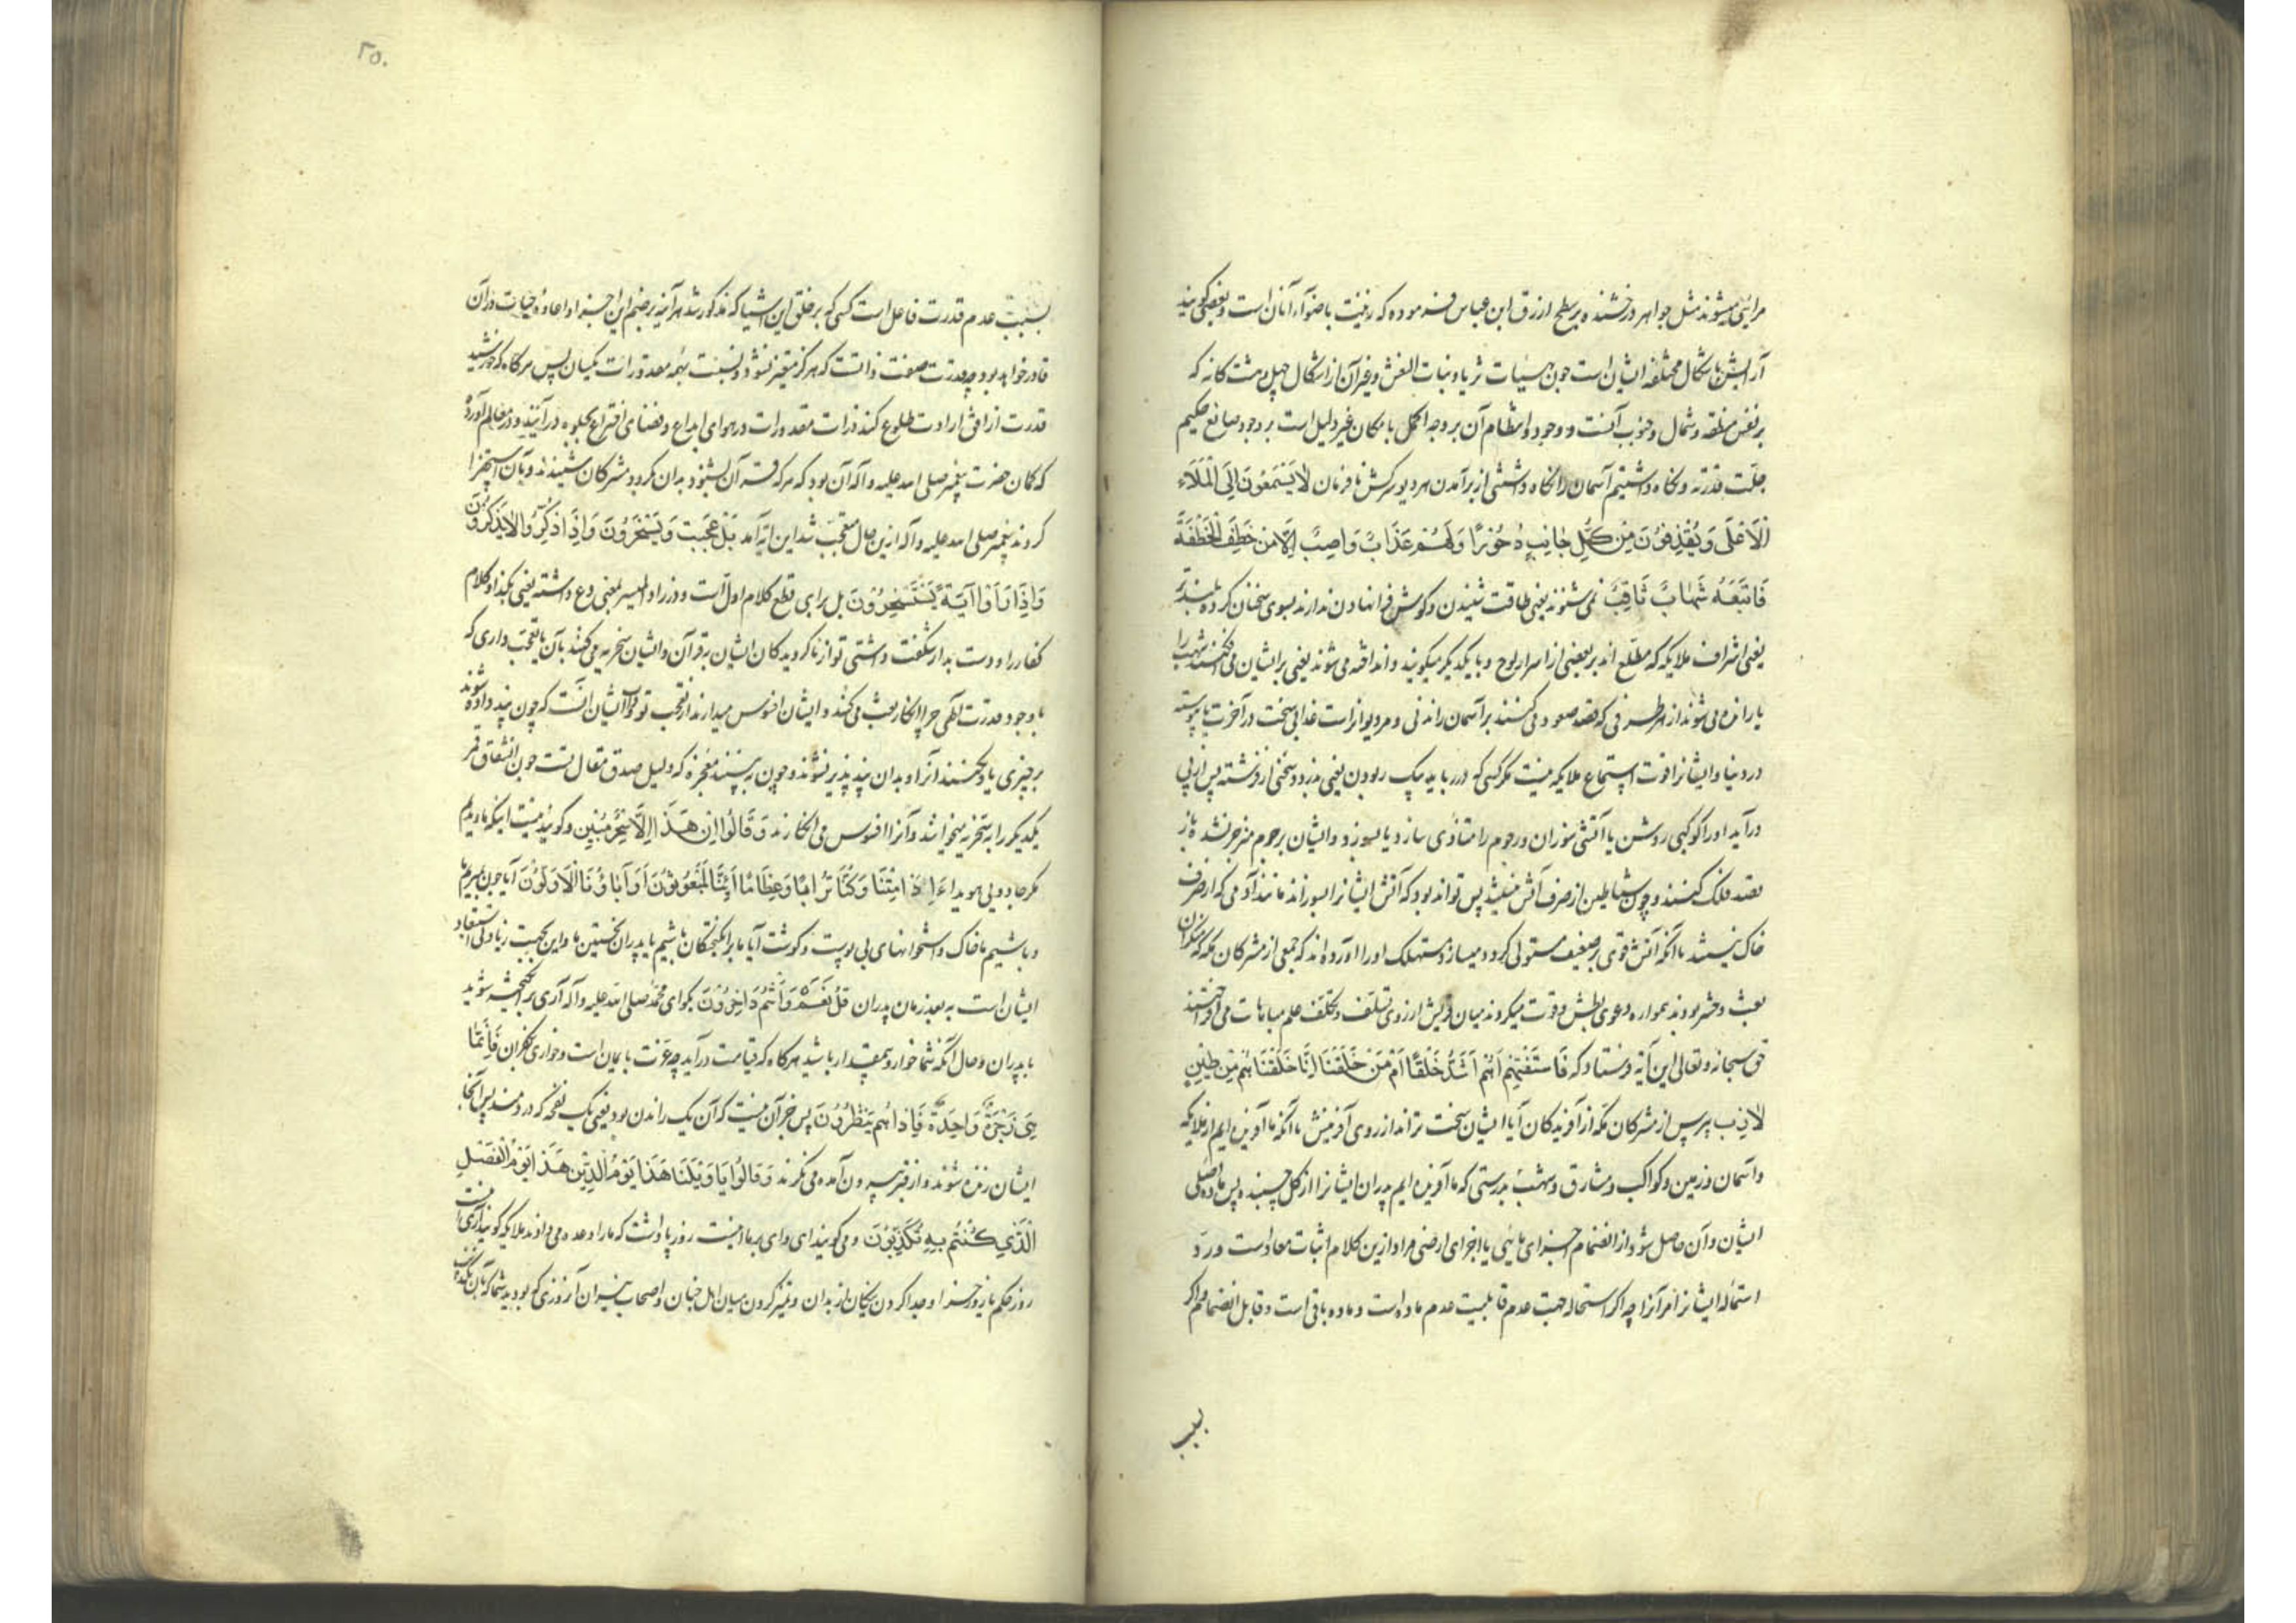 مرایی میشوند مثل جواهر درخشنده بر سطح ازرق ابن عباس فرموده که زینت باضوآء آنان است و بعضی گویند
آرایش باشکال مختلفه ایشان است چون هیئات ثریا و بنات النعش و غیر آن از اشکال چهل و هشت کانه که
بر نفس منطقه و شمال و جنوب آنست و وجود و انتظام آن بر وجه اکمل با مکان غیر دلیل است بر وجود صانع حکیم
جلّت قدرته و نکاه داشتیم آسمان را نکاه داشتنی از برآمدن هر دیو سرکش نافرمان لَا يَسَّمَّعُونَ إِلَى الْمَلَاءِ
الْاَعْلَى وَيُقْذَفُونَ مِنْ كُلِّ جَانِبٍ دُحُورًا وَلَهُمْ عَذَابٌ وَاصِبٌ إِلَّا مَنْ خَطِفَ الْخَطْفَةَ
فَاَتْبَعَهُ شَهَابٌ ثَاقِبٌ نمی شنوند یعنی طاقت شنیدن و کوش فرانهادن ندارند بسوی سخنان کروه بلندتر
یعنی اشراف ملایکه که مطلع اند بر بعضی از اسرار لوح و با یکدیگر میکویند و انداخته می شوند یعنی بر ایشان می افکنند شهب را
یا رانده می شوند از هر طرفی که قصد صعود می کنند بر آسمان راندنی و مر دیوانراست عذابی سخت در آخرت یا پیوسته
در دنیا و ایشانرا قوت استماع ملایکه نیست مکر کسی که در رباید یک ربودن یعنی بدزدد سخنی از فرشته پس از پی
درآید او را کوکبی روشن یا آتشی سوزان و رجوم را متاذی سازد یا بسوزد و ایشان برجوم منزجر نشده باز
قصد فلک کنند و چون شیاطین از صرف آتش نیستند پس تواند بود که آتش ایشانرا بسوزاند مانند آدمی که از صرف
خاک نیستند با آنکه آتش قوی بر ضعیف مستولی کردد و میسازد مستهلک او را آورده اند که جمعی از مشرکان مکه که منکران
بعث و حشر بودند همواره دعوی بطش و قوت میکردند میان قریش از روی تسلّف و تکلّف علم مباهات می افراختند
حق سبحانه و تعالی این آیه فرستاد که فَاسْتَفْتِهِمْ اَهُمْ اَشَدُّ خَلْقًا اَمْ مَنْ خَلَقْنَا اِنَّا خَلَقْنَاهُمْ مِنْ طِينٍ
لَازِبٍ بپرس از مشرکان مکه از آفریدکان آیا ایشان سخت تراند از روی آفرینش یا آنکه ما آفریده ایم از ملایکه
و آسمان و زمین و کواکب و مشارق و شهب بدرستی که ما آفریده ایم پدران ایشانرا از کل چسبنده پس ماده اصلی
ایشان و آن حاصل شود از انضمام اجزای مائی با اجزای ارضی مراد ازین کلام اثبات معاد است و ردّ
استحاله ایشانرا مر آنرا چه اکر استحاله جهت عدم قابلیت عدم ماده است و ماده باقی است و قابل انضمام و اکر
بسبب
۲۵۰
بسبب عدم قدرت فاعل است کسی که بر خلق این اشیا که مذکور شد هرآینه بر ضم این اجزا و اعاده حیات در آن
قادر خواهد بود چه قدرت صفت ذاتست که هرکز متغیر نشود و نسبت بهمه مقدورات یکسان پس هرکاه که خورشید
قدرت از افق ارادت طلوع کند ذرات مقدورات در هوای ابداع و فضای اختراع بجلوه درآیند و در معالم آورده
که کمان حضرت پیغمبر صلی الله علیه و آله آن بود که هر که قرآن بشنود بدان بکرود مشرکان شنیدند و بآن استهزا
کردند پیغمبر صلی الله علیه و آله ازین حال متعجب شد این آیه آمد بَلْ عَجِبْتَ وَيَسْخَرُونَ وَاِذَا ذُكِّرُوا لَا يَذْكُرُونَ
وَاِذَا رَاَوْا آيَةً يَسْتَسْخِرُونَ بل برای قطع کلام اول است و در زاد المسیر بمعنی دع داشته یعنی بکذار کلام
کفار را و دست بدار شکفت داشتی تو از ناکرویدکان ایشان بقرآن و ایشان سخریه می کنند بآن یا تعجب داری که
با وجود قدرت آلهی چرا انکار بعث می کنند و ایشان افسوس میدارند از تعجب تو و ایشان آنست که چون پند داده شوند
بر چیزی یاد نکنند آنرا و بدان پند پذیر نشوند و چون به بینند معجزه که دلیل صدق مقال تست چون انشقاق قمر
یکدیکر را به سخریه میخوانند و آنرا افسوس می انکارند وَقَالُوا اِنْ هَذَا اِلَّا سِحْرٌ مُبِينٌ و کویند نیست اینکه ما دیدیم
مکر جادویی هویدا ءَاِذَا مِتْنَا وَكُنَّا تُرَابًا وَعِظَامًا اَئِنَّا لَمَبْعُوثُونَ اَوَ آبَاؤُنَا الْاَوَّلُونَ آیا چون بمیریم ما
و باشیم ما خاک و استخوانهای بی پوست و کوشت آیا ما برانکیختکان باشیم یا پدران نخستین ما و این بجهت زیادتی استبعاد
ایشان است به بعد زمان پدران قُلْ نَعَمْ وَاَنْتُمْ دَاخِرُونَ بکو ای محمد صلی الله علیه و آله آری برانکیخته شوید
با پدران و حال آنکه شما خوار و بیمقدار باشید هرکاه که قیامت درآید چه عزت با ایمان است و خواری بکفران فَاِنَّمَا
هِيَ زَجْرَةٌ وَاحِدَةٌ فَاِذَا هُمْ يَنْظُرُونَ پس جز آن نیست که آن یک راندن بود یعنی یک نفخه که در دمند پس آنکاه
ایشان زنده شوند و از قبر بیرون آمده می نکرند وَقَالُوا يَا وَيْلَنَا هَذَا يَوْمُ الدِّينِ هَذَا يَوْمُ الْفَصْلِ
الَّذِي كُنْتُمْ بِهِ تُكَذِّبُونَ و می کویند ای وای بر ما اینست روز پاداشت که ما را وعده می دادند ملایکه کویند آری اینست
روز حکم یا روز جزا و جدا کردن نیکان از بدان و تمیز کردن میان اهل جنان و اصحاب نیران آن روزی که بودید شما که بآن تکذیب